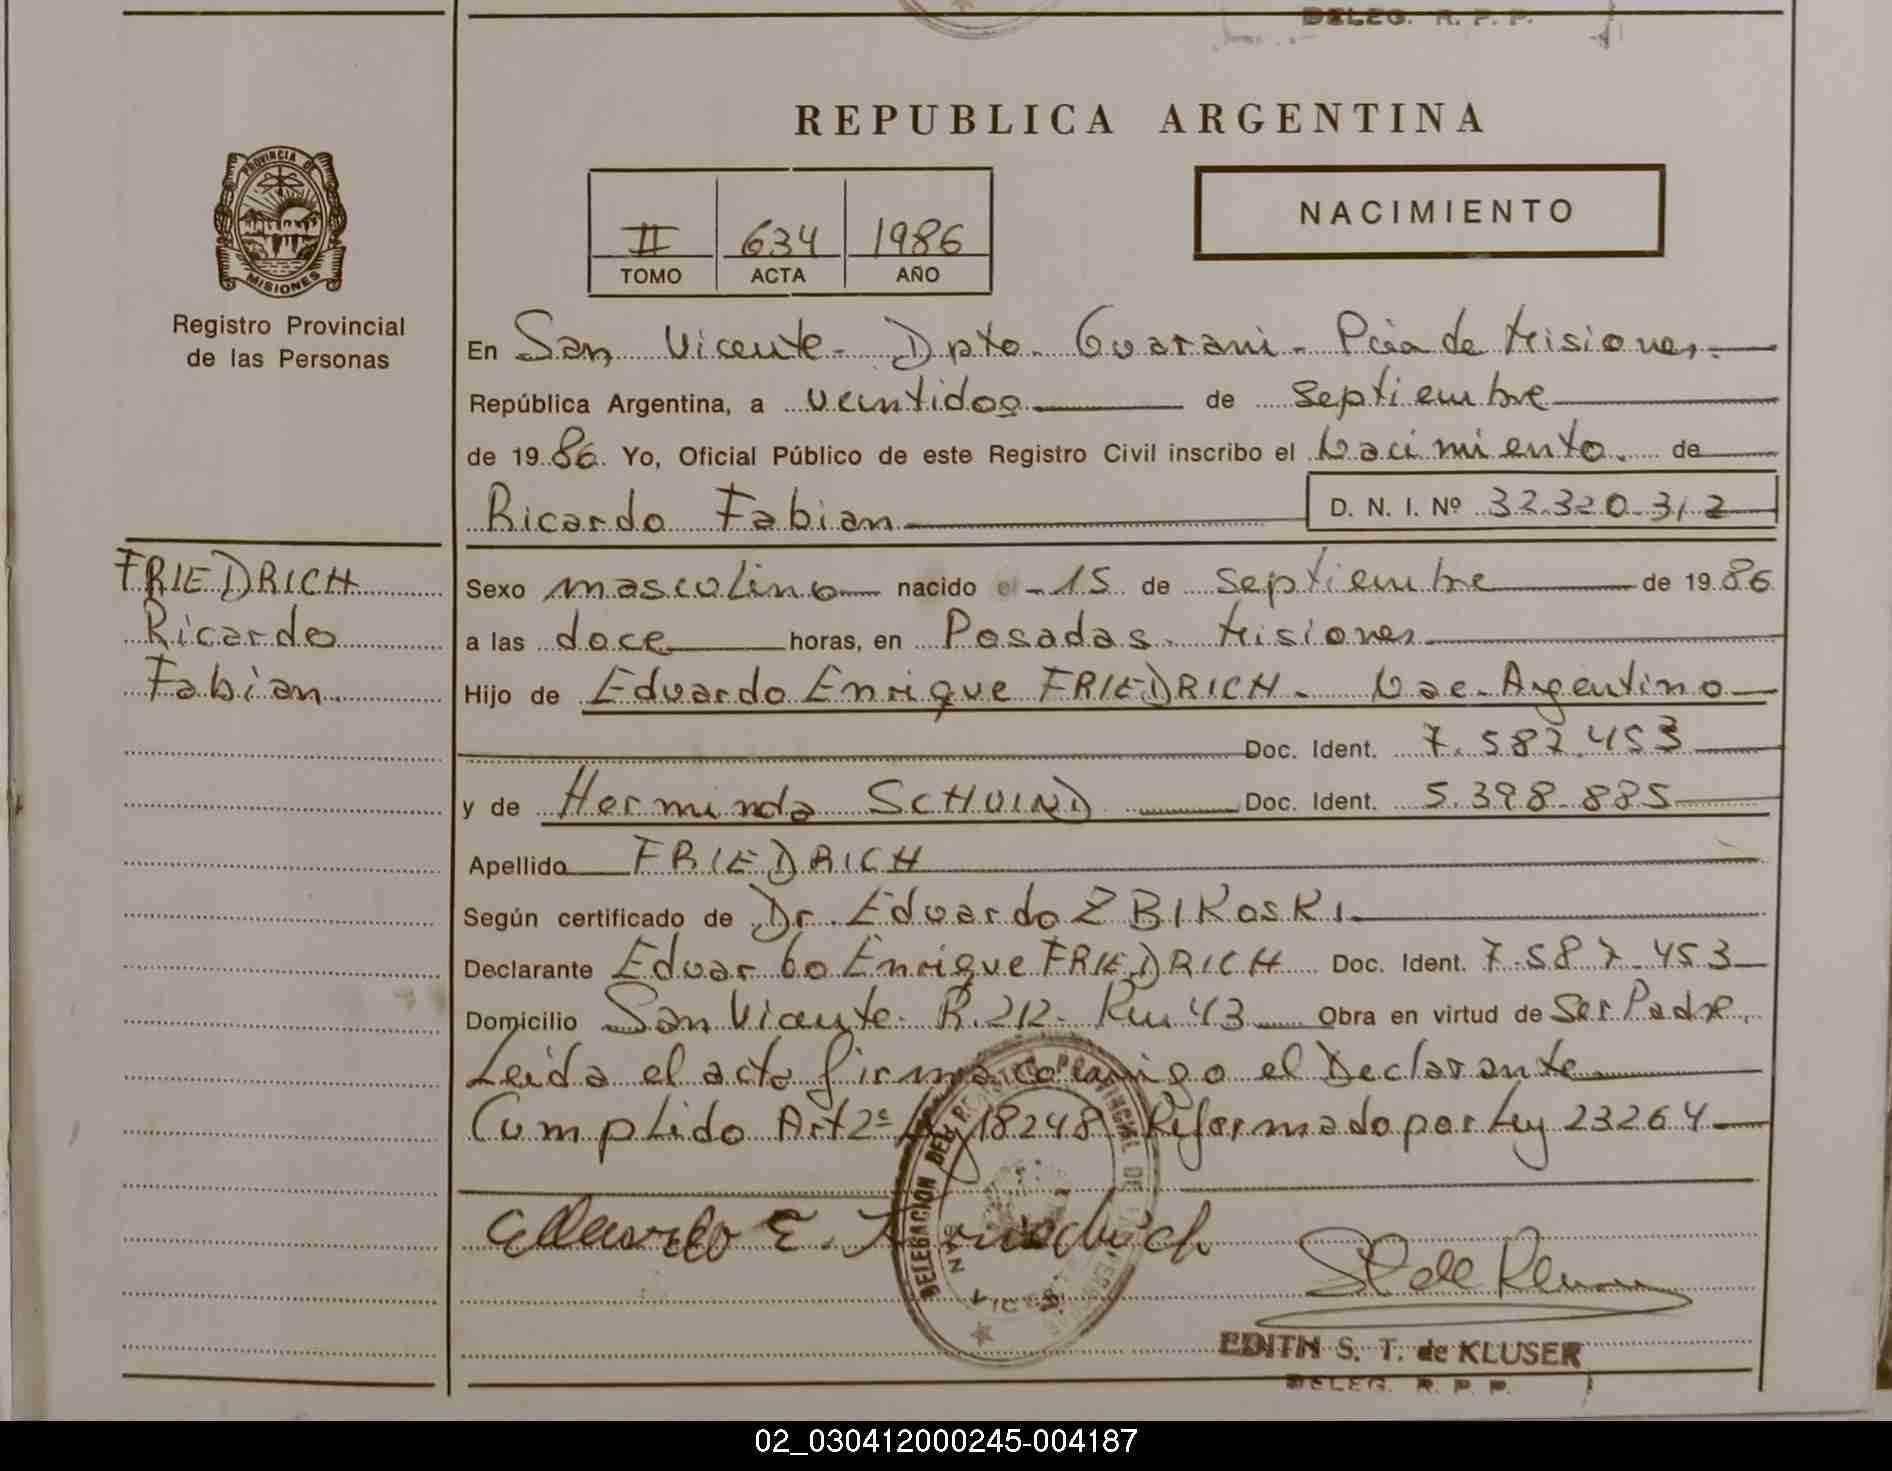 DELEG. R. P. P.
REPUBLICA ARGENTINA
PROVINCIA DE
MISIONES
Registro Provincial
de las Personas
II 634 1986
TOMO ACTA AÑO
NACIMIENTO
En San Vicente - Dpto. Guarani - Pcia de Misiones.
República Argentina, a veintidos de septiembre
de 1986. Yo, Oficial Público de este Registro Civil inscribo el Nacimiento de
Ricardo Fabian D. N. I. Nº 32.320.312
FRIEDRICH
Ricardo
Fabian
Sexo masculino nacido el 15 de septiembre de 1986
a las doce horas, en Posadas - Misiones
Hijo de Eduardo Enrique FRIEDRICH - Nac. Argentino
Doc. Ident. 7.587.453
y de Herminda SCHUIND Doc. Ident. 5.398.885
Apellido FRIEDRICH
Según certificado de Dr. Eduardo ZBIKosKi
Declarante Eduardo Enrique FRIEDRICH Doc. Ident. 7.587.453
Domicilio San Vicente - R. 212 - Km 43 Obra en virtud de Ser Padre.
Leida el acta firma conmigo el Declarante
Cumplido Art 2º Ley 18248 Reformado por Ley 23264
Eduardo E. Friedrich
DELEGACION DEL REGISTRO PROVINCIAL DE LAS PERSONAS
VICENTE
EDITH S. T. de KLUSER
DELEG. R. P. P.
02_030412000245-004187